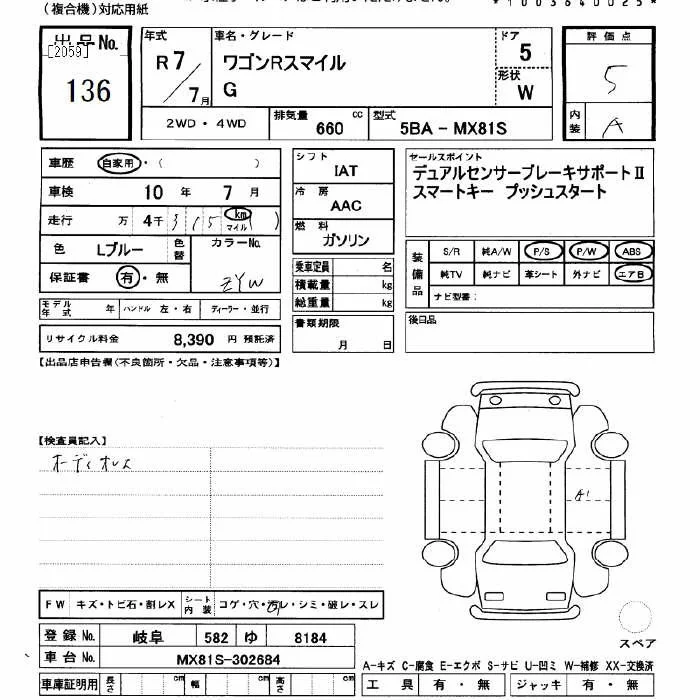 (複合機)対応用紙
*1003640025*
出品No.
[2059]
136
年式
R7/7月
車名・グレード
ワゴンRスマイル
G
ドア
5
形状
W
評価点
5
内装
A
2WD・4WD
排気量 660 cc
型式 5BA - MX81S
車歴 自家用・( )
車検 10年 7月
走行 万 4千315 km マイル ( )
色 Lブルー 色替
カラーNo. ZYW
保証書 有・無
シフト
IAT
冷房
AAC
燃料
ガソリン
乗車定員 名
積載量 kg
総重量 kg
書類期限
月 日
セールスポイント
デュアルセンサーブレーキサポートⅡ
スマートキー プッシュスタート
装備品
S/R 純A/W P/S P/W ABS
純TV 純ナビ 革シート 外ナビ エアB
ナビ型番:
後日品
モデル年式 年 ハンドル 左・右 ディーラー・並行
リサイクル料金 8,390 円 預託済
【出品店申告欄(不良箇所・欠品・注意事項等)】
【検査員記入】
オーディオレス
A1
FW キズ・トビ石・割レX シート内装 コゲ・穴・汚レ・シミ・破レ・スレ
登録No. 岐阜 582 ゆ 8184
車台No. MX81S-302684
車庫証明用 長さ cm 幅 cm 高さ cm
スペア
A-キズ C-腐食 E-エクボ S-サビ U-凹ミ W-補修 XX-交換済
工具 有・無 ジャッキ 有・無